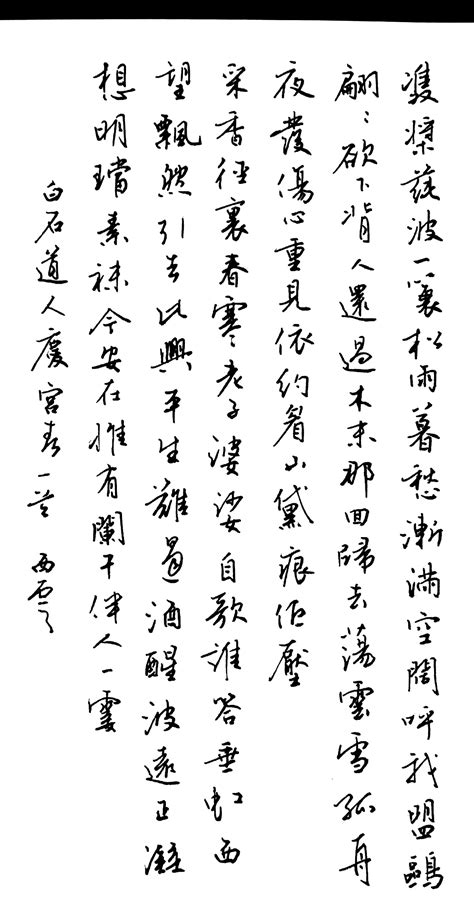 雙槳莼波一蓑松雨暮愁漸滿空闊呼我盟鷗
翩〻欲下背人還過木末那回歸去蕩雲雪孤舟
夜發傷心重見依約眉山黛痕低壓
采香徑裏春寒老子婆娑自歌誰答垂虹西
望飄然引去此興平生難遏酒醒波遠正凝
想明璫素襪今安在惟有闌干伴人一霎
白石道人慶宮春一首 西雲